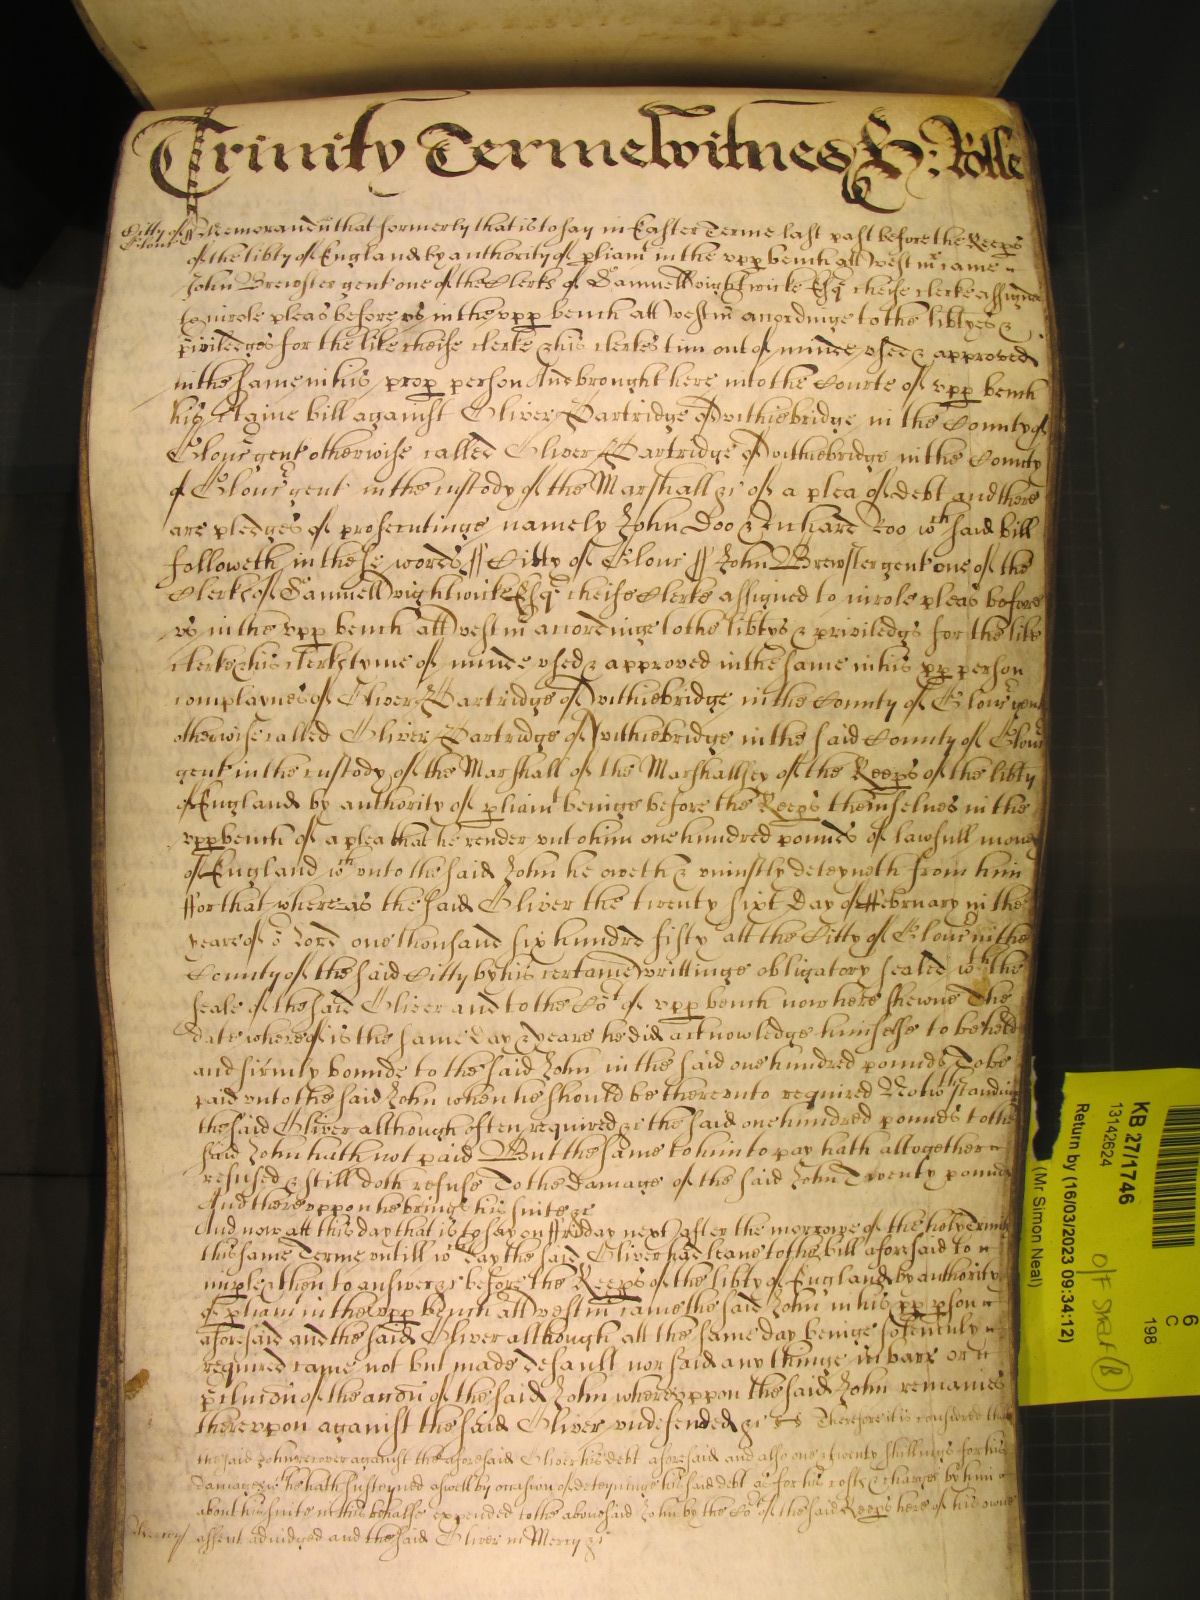 Trinity Terme Witnes H: Rolle
Citty of Glouc ss Memorandu that formerly that is to say in Easter Terme last past before the Keeps
of the libty of England by authority of pliamt in the upp bench att Westmr came
John Brewster gent one of the Clerks of Samuell Wightwicke Esqr cheife clerke assigned
to inrole pleas before us in the upp bench att Westm accordinge to the libtyes &
priviledges for the like cheife clerke & his clerkes tim out of minde used & approved
in the same in his prop person And brought here into the Courte of upp bench
his Claime bill against Oliver Partridge of Withiebridge in the County of
Glouc gent otherwise called Oliver Partridge of Withiebridge in the County
of Glouc gent in the custody of the Marshall &c of a plea of debt and there
are pledges of prosecutinge namely John Doo & Richard Roo wch said bill
followeth in these words ss Citty of Glouc ss John Brewster gent one of the
Clerks of Samuell Wightwicke Esqr cheife Clerke assigned to inrole pleas before
us in the upp bench att Westm accordinge to the libtys & priviledgs for the like
clerke & his clerks tyme of minde used & approved in the same in his pp person
complaynes of Oliver Partridge of Withiebridge in the County of Glouc gent
otherwise called Oliver Partridge of Withiebridge in the said County of Glouc
gent in the custody of the Marshall of the Marshallsey of the Keeps of the libty
of England by authority of pliamt beinge before the Keeps themselves in the
upp bench of a plea that he render unto him one hundred pounds of lawfull money
of England wch unto the said John he oweth & uniustly deteyneth from him
ffor that whereas the said Oliver the twenty sixt day of ffebruary in the
yeare of o Lord one thousand six hundred fifty att the Citty of Glouc in the
County of the said Citty by his certaine writtinge obligatory sealed wth the
seale of the said Oliver and to the Cort of upp bench now here shewne The
date whereof is the same day & yeare he did acknowledge himselfe to be held
and firmly bounde to the said John in the said one hundred pounds To be
paid unto the said John when he should be thereunto required Notwthstandinge
the said Oliver although often required &c the said one hundred pounds to the
said John hath not paid But the same to him to pay hath alltogether
refused & still doth refuse To the damage of the said John Twenty pounds
And thereuppon he brings his suite &c
And now att this day that is to say on ffryday next after the morrowe of the holy Trinity
this same Terme untill wch day the said Oliver had leave to the bill aforesaid to
imple & then to answer &c before the Keeps of the libty of England by authority
of pliam in the upp bench att Westm came the said John in his pp pson
aforesaid and the said Oliver although att the same day beinge solemnly
required came not but made default nor said any thinge in barr or
pclucon of the accon of the said John whereuppon the said John remaines
thereupon against the said Oliver undefended &c Therefore it is considered that
the said John recover against the aforesaid Oliver his debt aforesaid and also one & twenty shillings for his
damages wch he hath susteyned aswell by occasion of deteyninge his said debt as for his costs & charges by him
about his suite in this behalfe expended to the abovesaid John by the Cort of the said Keeps here of his owne
Mercy assent adiudged and the said Oliver in Mercy &c
KB 27/1746
13142624
Return by (16/03/2023 09:34:12)
(Mr Simon Neal)
6
C
198